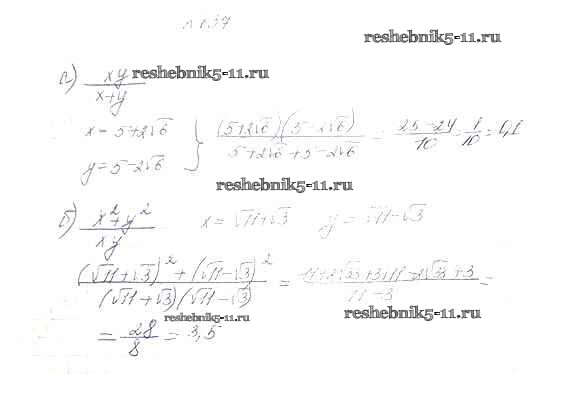 № 137
reshebnik5-11.ru
а) xy/(x+y) reshebnik5-11.ru
x = 5+2√6 } ((5+2√6)(5-2√6))/(5+2√6+5-2√6) = (25-24)/10 = 1/10 = 0,1
y = 5-2√6
reshebnik5-11.ru
б) (x²+y²)/(xy) x = √11+√3 y = √11-√3
((√11+√3)²+(√11-√3)²)/((√11+√3)(√11-√3)) = (11+2√33+3+11-2√33+3)/(11-3) =
reshebnik5-11.ru reshebnik5-11.ru
= 28/8 = 3,5